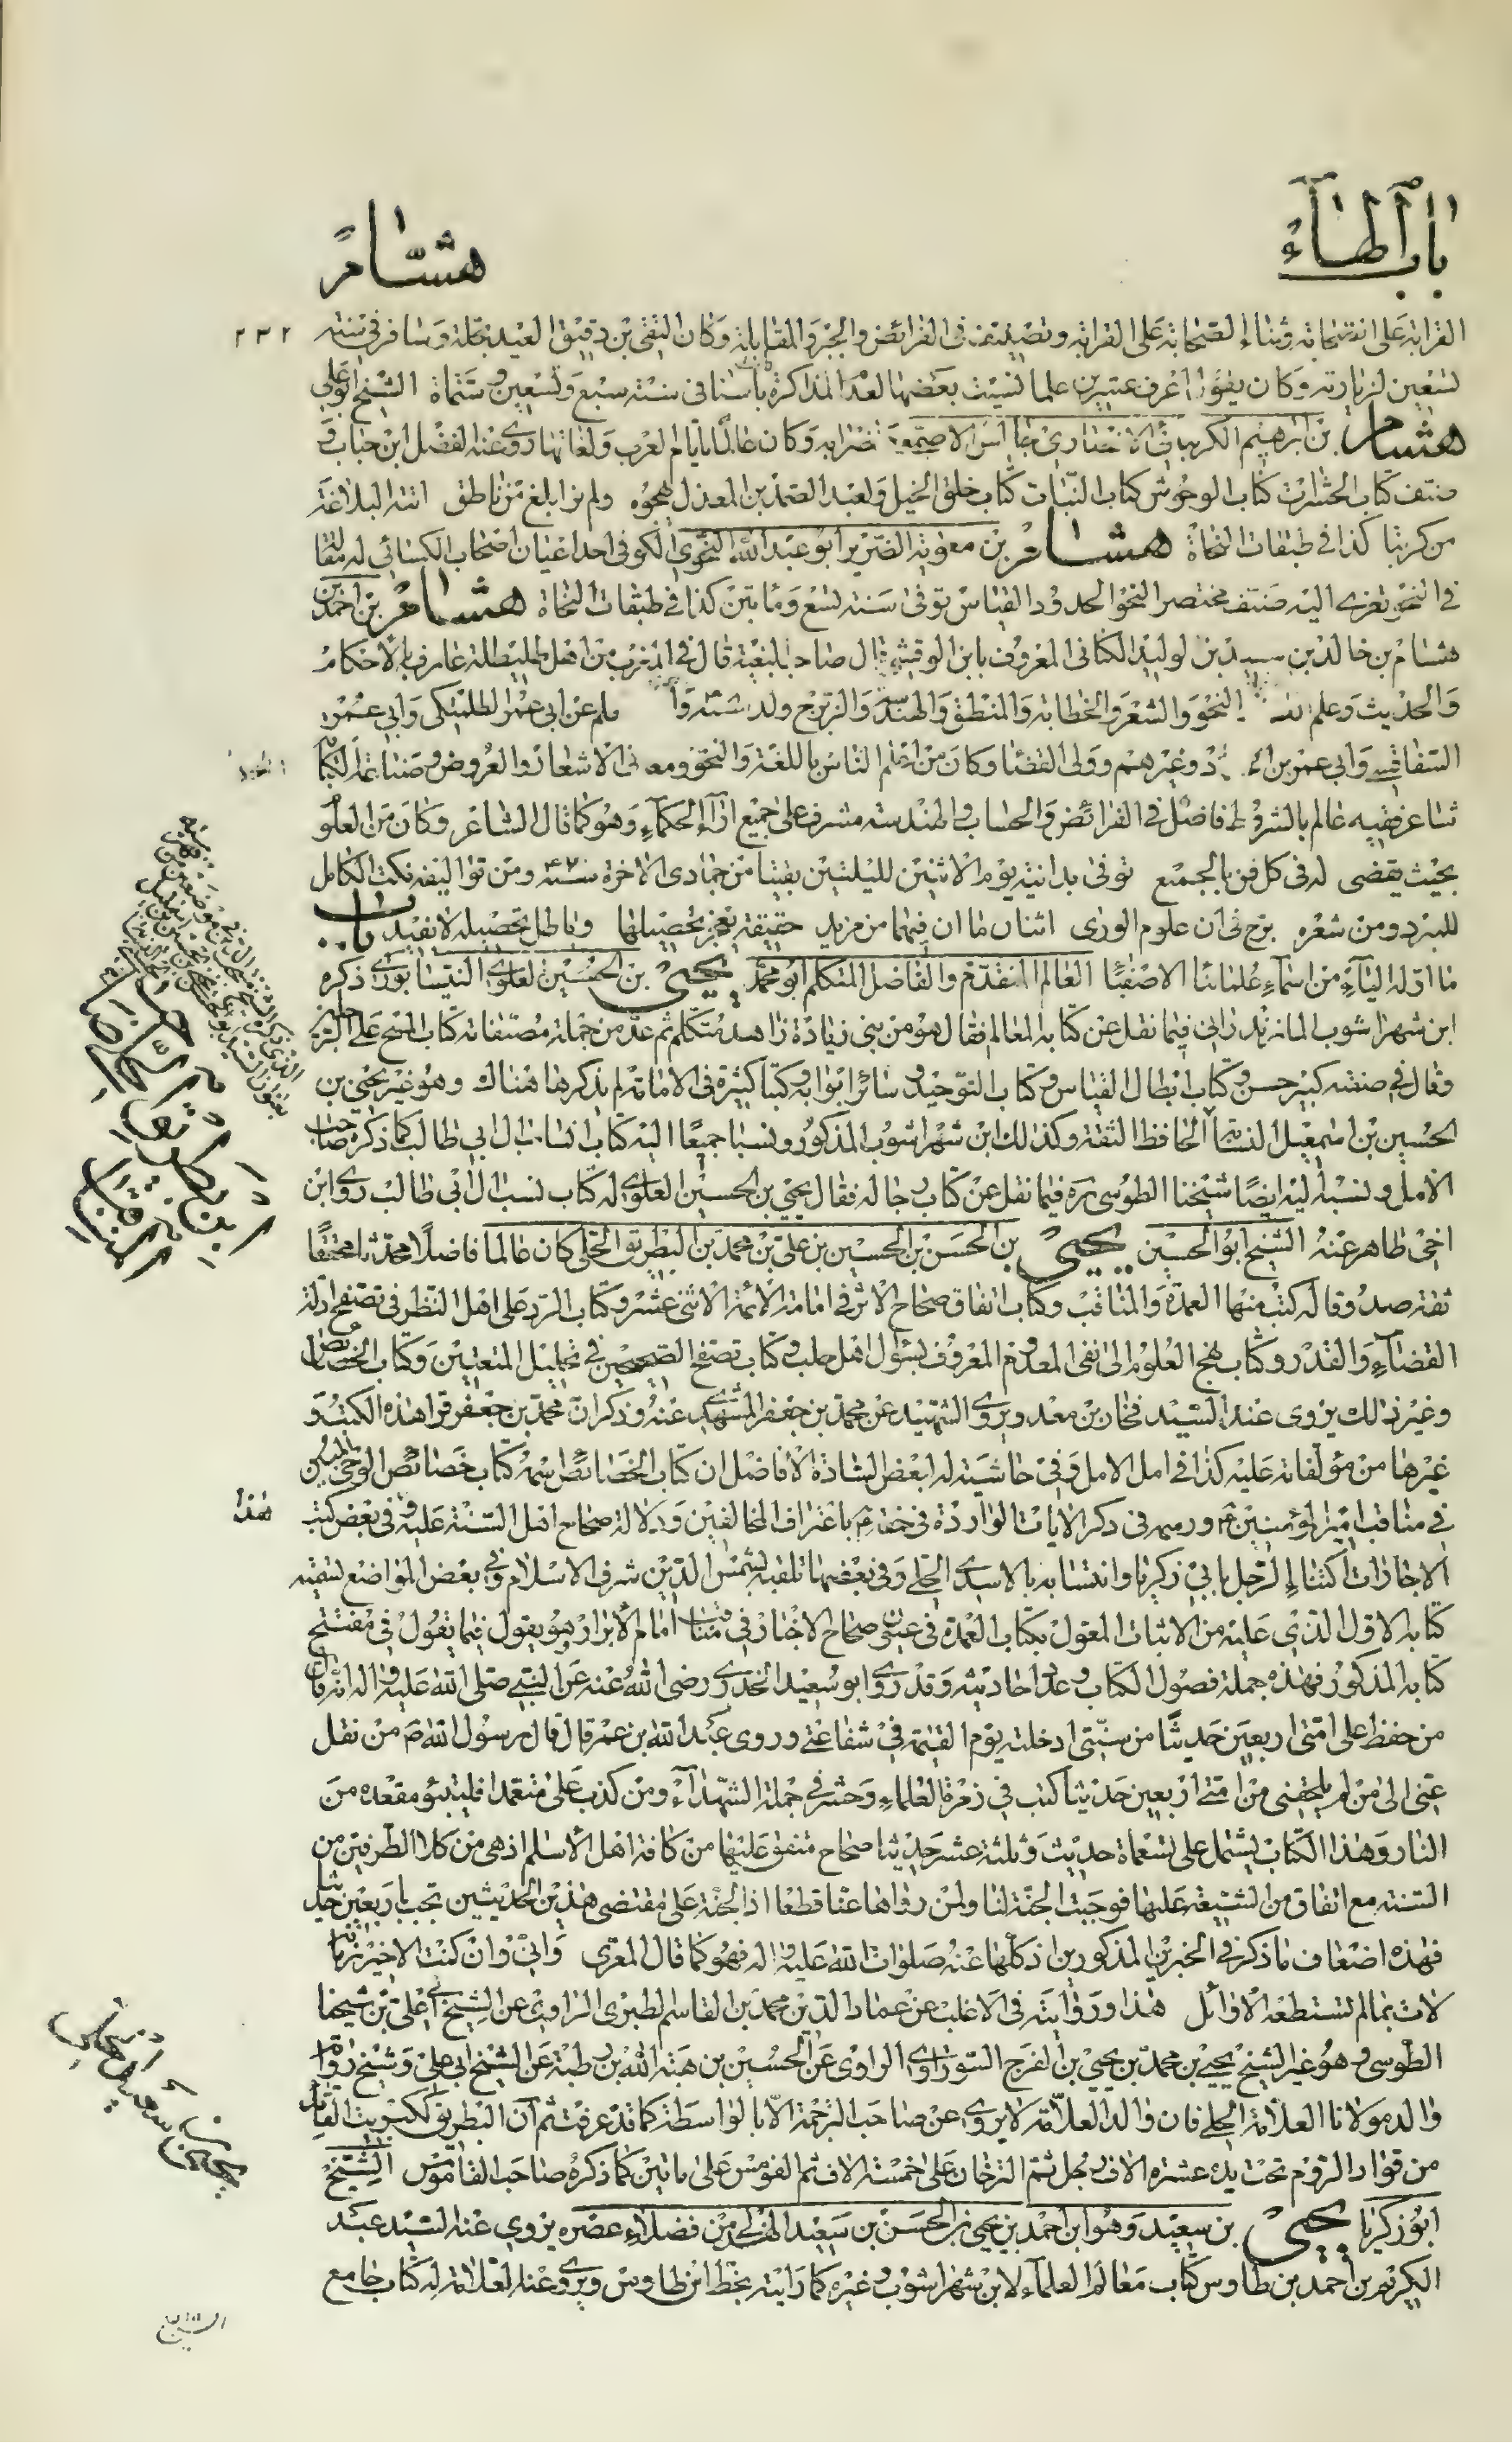 باب الهاء
هشام
٢٣٢
القرابة على الصحابة وثناء الصحابة على القرابة وتصنيف في الفرائض والجبر والمقابلة وكان التقي بن دقيق العيد يجله وسافر في سنة
تسعين لزيارته وكان يقول اعرف عشرين علما نسيت بعضها لعدم المذاكرة باسنا في سنة سبع وتسعين وستمأة الشيخ ابو علي
هشام بن ابرهيم الكرنبائي الانصاري جالس الاصمعي واضرابه وكان عالما بايام العرب ولغاتها روى عنه الفضل ابن حباب و
صنف كتاب الحشرات كتاب الوحوش كتاب النبات كتاب خلق الخيل ولعبد الصمد بن المعذل يهجوه ولم نر ابلغ من ناطق اتته البلاغة
من كرنبا كذا في طبقات النحاة هشام بن معوية الضرير ابو عبد الله النحوي الكوفي احد اعيان اصحاب الكسائي له مقالة
في النحو تعزى اليه صنف مختصر النحو الحدود القياس توفى سنة تسع ومأتين كذا في طبقات النحاة هشام بن احمد بن
هشام بن خالد بن سعيد بن الوليد الكناني المعروف بابن الوقشي قال صاحب البغية قال في المغرب من اهل طليطلة عارف بالاحكام
والحديث وعلم النحو والشعر والخطابة والمنطق والهندسة والزيج ولد سنة عن ابي عمر الطلمنكي وابي عمرو
السفاقسي وابي عمر بن وغيرهم وولى القضاء وكان من اعلم الناس باللغة والنحو ومعاني الاشعار والعروض وصناعة الكتابة
شاعر فقيه عالم بالشروط فاضل في الفرائض والحساب والهندسة مشرف على جميع اراء الحكماء وهو كما قال الشاعر وكان من العلو
بحيث يقضى له في كل فن بالجميع توفى بدانية يوم الاثنين لليلتين بقيتا من جمادى الاخرة سنة ومن تواليفه نكت الكامل
للمبرد ومن شعره برح بي ان علوم الورى اثنان ما ان فيهما من مزيد حقيقة يعجز تحصيلها وباطل تحصيله لا يفيد باب
ما اوله الياء من اسماء علمائنا الاصفياء العالم المتقدم والفاضل المتكلم ابو محمد يحيى بن الحسين العلوي النيسابوري ذكره
ابن شهراشوب المازندراني فيما نقل عن كتابه المعالم فقال هو من بني زيادة زاهد متكلم ثم عد من جملة مصنفاته كتاب المسح على الرجلين
وقال في صنفته كبير حسن وكتاب ابطال القياس وكتاب التوحيد وسائر ابوابه وكتبا كثيرة في الامامة لم يذكرها هناك وهو غير يحيى بن
الحسين بن اسمعيل النسابة الحافظ الثقة وكذلك ابن شهراشوب المذكور ونسبا جميعا اليه كتاب انساب ال ابي طالب كما ذكره صاحب
الامل ونسبه اليه ايضا شيخنا الطوسي ره فيما نقل عن كتاب رجاله فقال يحيى بن الحسين العلوي له كتاب نسب ال ابي طالب روى ابن
اخي طاهر عنه الشيخ ابو الحسين يحيى بن الحسن بن الحسين بن علي بن محمد بن البطريق الحلي كان عالما فاضلا محدثا محققا
ثقة صدوقا له كتب منها العمدة والمناقب وكتاب اتفاق صحاح الاثر في امامة الائمة الاثنى عشر وكتاب الرد على اهل النظر في تصفح ادلة
القضاء والقدر وكتاب نهج العلوم الى نفى المعدوم المعروف بسؤال اهل حلب وكتاب تصفح الصحيحين في تحليل المتعتين وكتاب الخصائص
وغير ذلك يروى عنه السيد فخار بن معد ويروى الشهيد عن محمد بن جعفر المشهدي عنه وذكر ان محمد بن جعفر قرا هذه الكتب و
غيرها من مؤلفاته عليه كذا في امل الامل وفي حاشيته له لبعض السادة الافاضل ان كتاب الخصائص اسمه كتاب خصائص الوحي المبين
في مناقب امير المؤمنين ع ورسمه في ذكر الايات الواردة في حقه ع باعتراف المخالفين ودلالة صحاح اهل السنة عليه وفي بعض كتب
هذا
الاجازات اكتناء الرجل بابي زكريا وانتسابه بالاسدي الحلي وفي بعضها تلقبه بشمس الدين شرف الاسلام وفي بعض المواضع لتسميته
كتابه الاول الذي عليه من الاثبات المعول بكتاب العمدة في عيون صحاح الاخبار في مناقب امام الابرار وهو يقول فيما يقول في مفتتح
كتابه المذكور فهذه جملة فصول الكتاب وعدد احاديثه وقد روى ابو سعيد الخدري رضى الله عنه عن النبي صلى الله عليه واله انه قال
من حفظ على امتى اربعين حديثا من سنتي ادخلته يوم القيمة في شفاعتي وروى عبد الله بن عمر قال قال رسول الله ص من نقل
عني الى من لم يلحقني من امتي اربعين حديثا كتب في زمرة العلماء وحشر في جملة الشهداء ومن كذب على متعمدا فليتبوء مقعده من
النار وهذا الكتاب يشتمل على تسعماة حديث وثلثة عشر حديثا صحاح متفق عليها من كافة اهل الاسلام اذ هي من كلا الطرفين من
السنة مع اتفاق من الشيعة عليها فوجبت الجنة لنا ولمن رواها عنا قطعا اذ الجنة على مقتضى هذين الحديثين تجب باربعين حديثا
فهذه اضعاف ما ذكر في الخبرين المذكورين اذ كلها عنه صلوات الله عليه واله فهو كما قال المعري واني وان كنت الاخير زمانه
لات بما لم تستطعه الاوائل هذا وروايته في الاغلب عن عماد الدين محمد بن القاسم الطبري الراوي عن الشيخ ابي علي بن شيخنا
الطوسي وهو غير الشيخ يحيى بن محمد بن يحيى بن الفرج السوراوي الراوي عن الحسين بن هبة الله بن رطبة عن الشيخ ابي علي وشيخ رواية
والد مولانا العلامة الحلي فان والد العلامة لا يروى عن صاحب الترجمة الا بالواسطة كما قد عرفت ثم ان البطريق ككبريت القائد
من قواد الروم تحت يده عشرة الاف رجل ثم الترخان على خمسة الاف ثم القومس على مأتين كما ذكره صاحب القاموس الشيخ
ابو زكريا يحيى بن سعيد وهو ابن احمد بن يحيى بن الحسن بن سعيد الهذلي من فضلاء عصره يروى عنه السيد عبد
الكريم بن احمد بن طاوس كتاب معالم العلماء لابن شهراشوب وغيره كما رايته بخط ابن طاوس ويروى عنه العلامة له كتاب جامع
ابن بطريق
صاحب
المناقب
يحيى بن سعيد